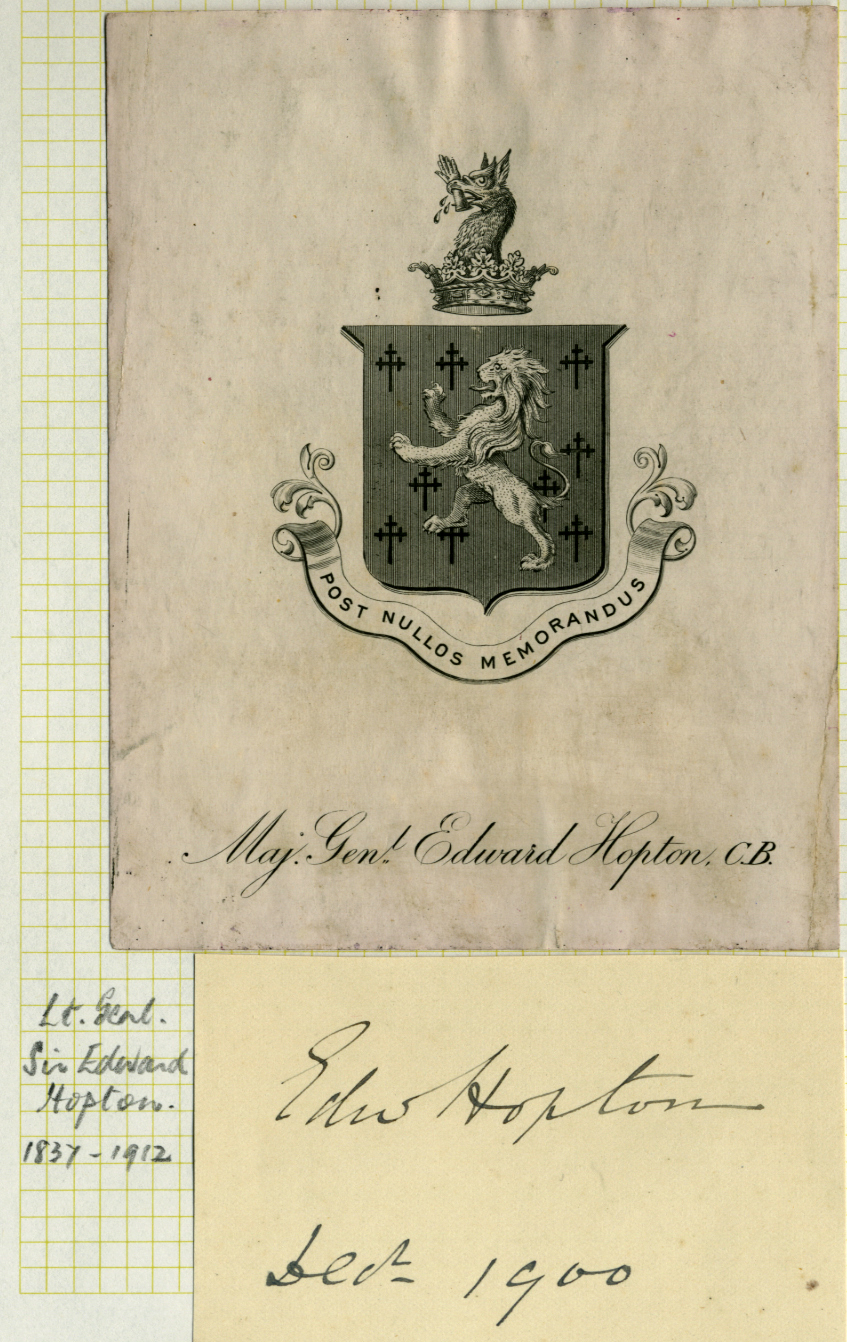 POST NULLOS MEMORANDUS
Maj. Genl. Edward Hopton. C.B.
Lt. Genl.
Sir Edward
Hopton.
1837 - 1912
Edw Hopton
Decr 1900